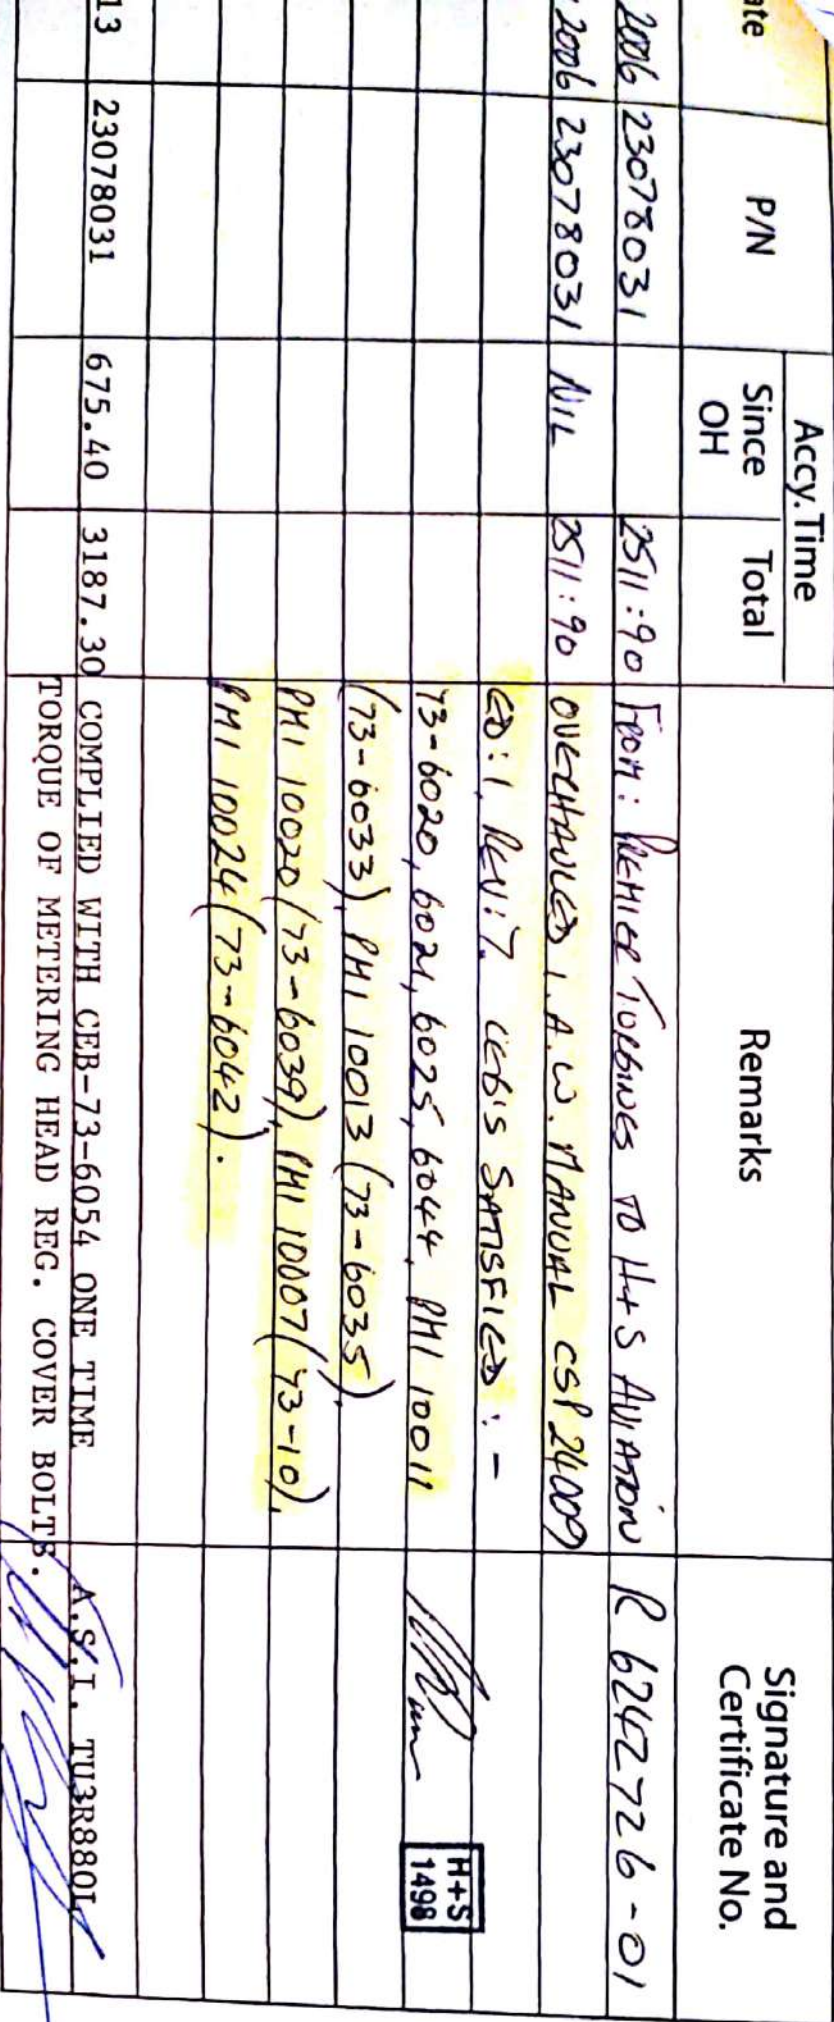 ate P/N Accy. Time Remarks Signature and Certificate No.
Since OH Total
2006 23078031 2511:90 FROM: PREMIER TURBINES TO H+S AVIATION R 6242726-01
2006 23078031 NIL 2511:90 OVERHAULED I.A.W. MANUAL CSP 24009
ED:1, REV:7. CEB'S SATISFIED :-
73-6020, 6021, 6025, 6044, PMI 10011
H+S 1498
(73-6033), PMI 10013 (73-6035),
PMI 10020 (73-6039), PMI 10007 (73-10),
PMI 10024 (73-6042).
13 23078031 675.40 3187.30 COMPLIED WITH CEB-73-6054 ONE TIME A.S.I. TU3R880L
TORQUE OF METERING HEAD REG. COVER BOLTS.